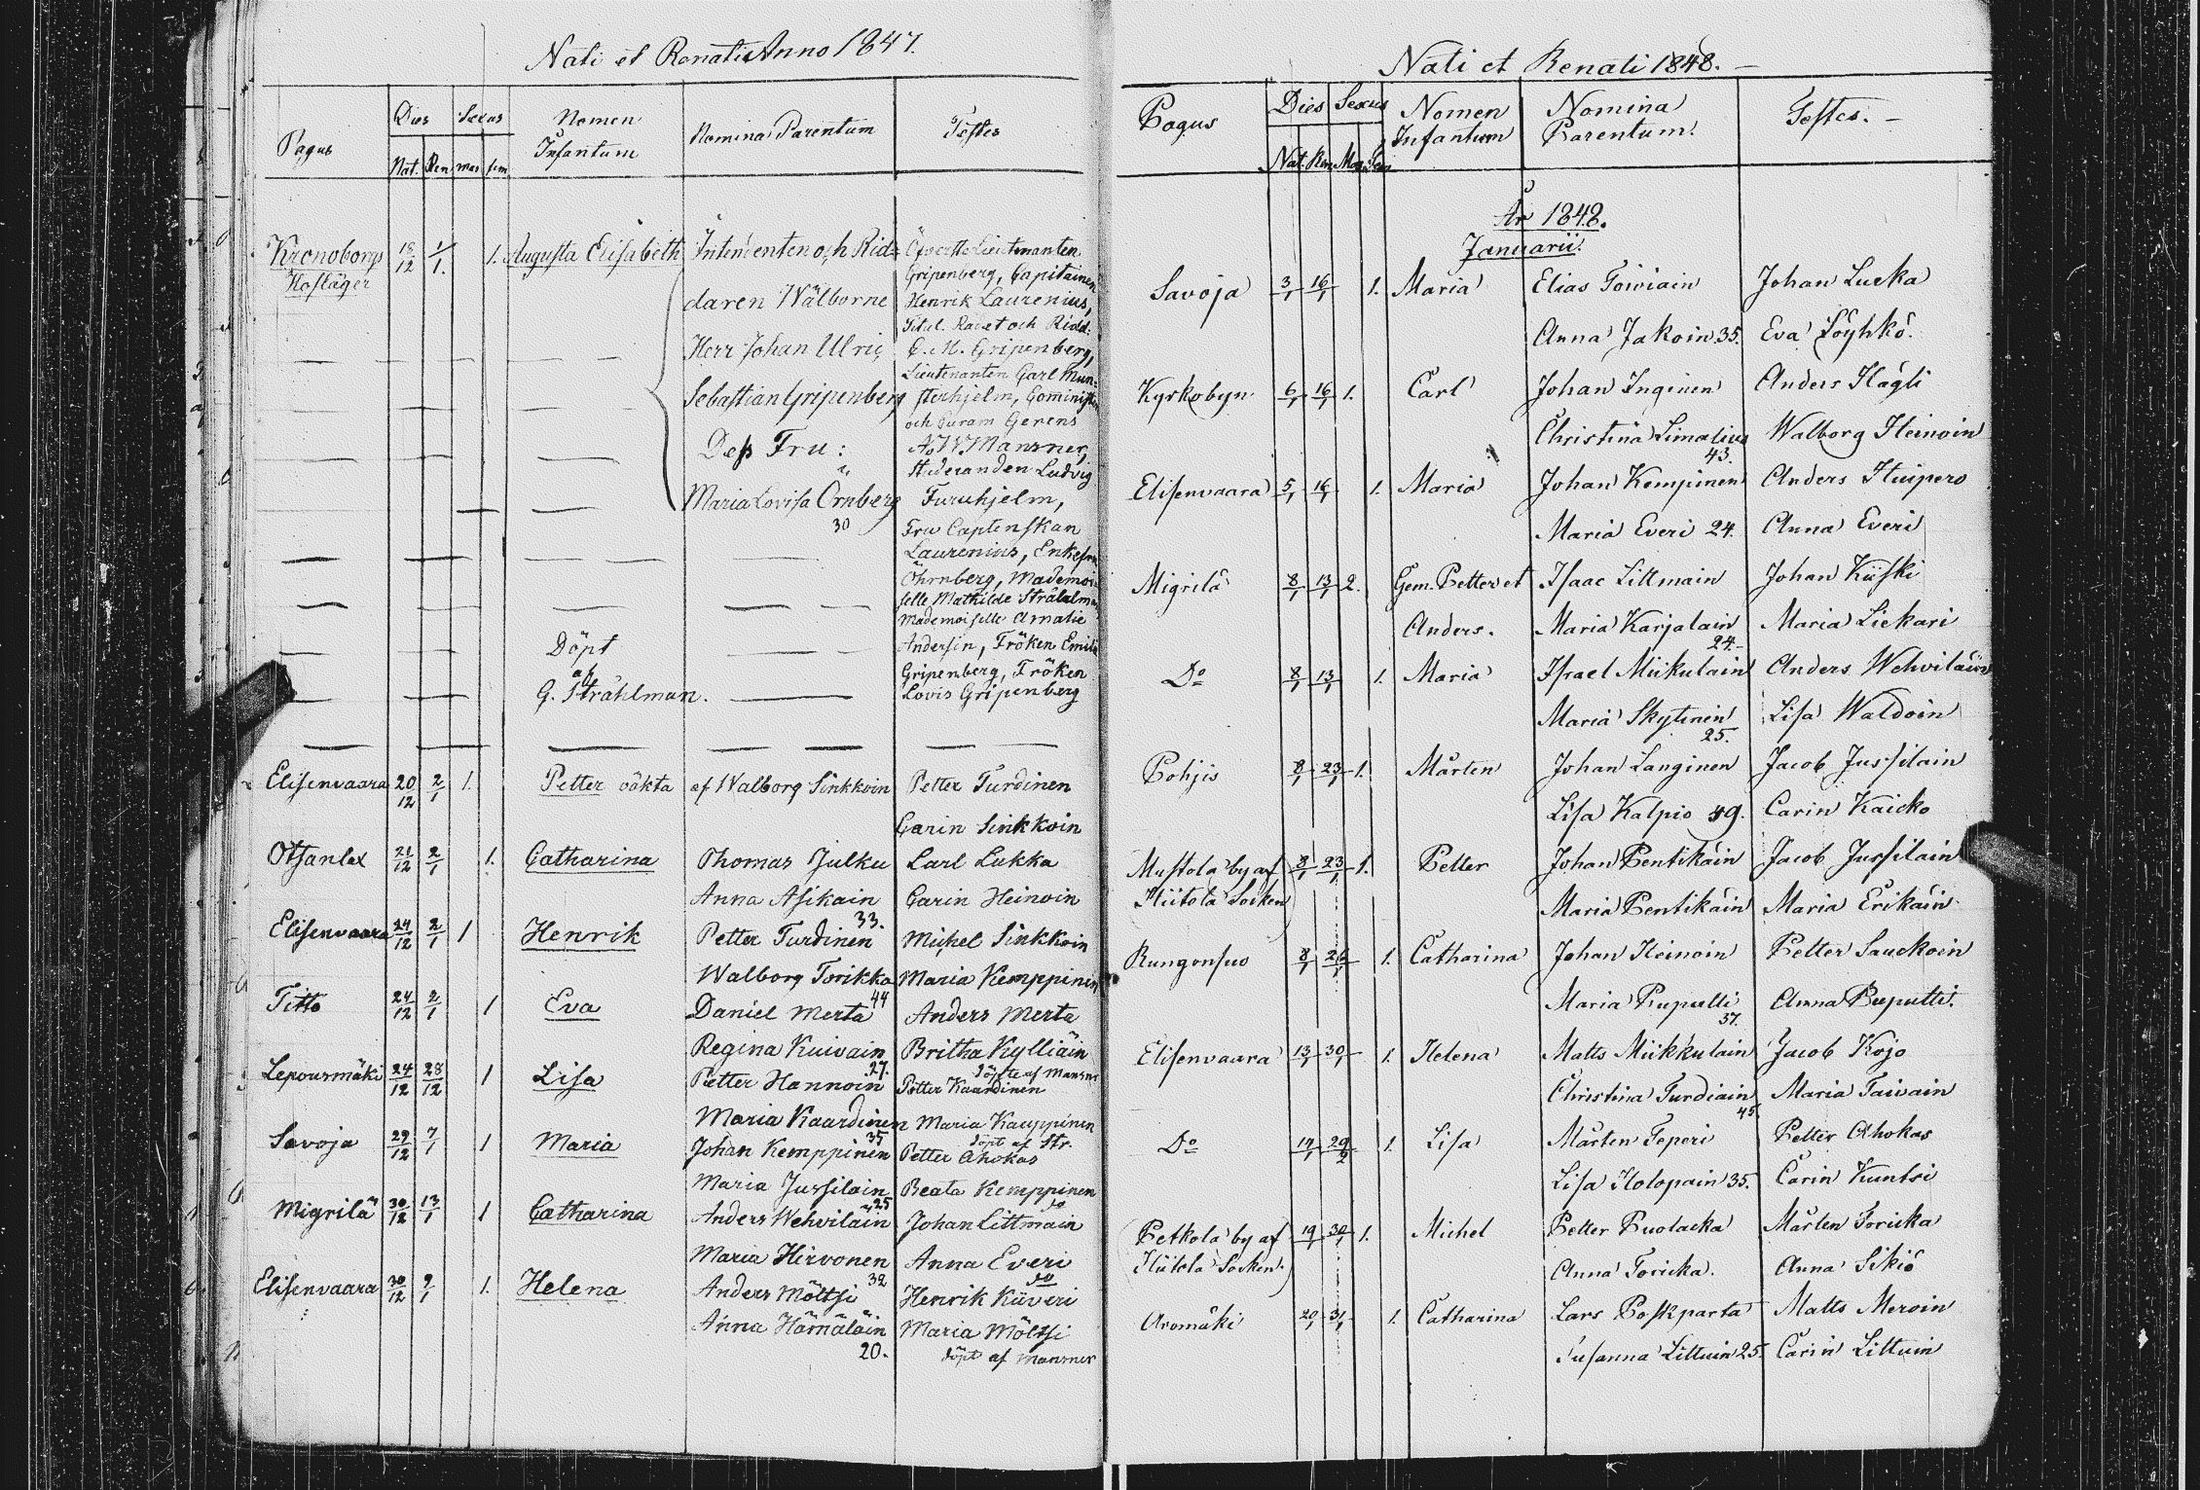 Nati et Renati Anno 1847.
Pagus Dies Sexus Nomen Infantum Nomina Parentum Testes
Nat. Ren. mas fem.
Kronoborgs 18/12 1/1. 1. Augusta Elisabeth Intendenten och Rid= Öfverste Lieutnanten
Hofläger Gripenberg, Capitainen
daren Wälborne Henrik Laurenius,
Titul. Rådet och Ridd:
Herr Johan Ulric Gripenberg,
Lieutenanten Carl Mun=
Sebastian Gripenberg sterhjelm,
och Curam Gerens
Dess Fru: Mansner,
Studeranden Ludvig
Maria Lovisa Örnberg Furuhjelm,
30 Fru Captenskan
Laurenius, Enkefru
Öhrnberg, Mademoi
selle Mathilde Stråhlman
Mademoiselle Amalie
Döpt Andersin, Fröken Emilie
af Gripenberg, Fröken
G. Stråhlman. Lovis Gripenberg
Elisenvaara 20/12 2/1 1. Petter oäkta af Walborg Sinkkoin Petter Turdinen
Carin Sinkkoin
Otsanlax 21/12 2/1 1. Catharina Thomas Julku Carl Lukka
Anna Asikain Carin Heinoin
33.
Elisenvaara 24/12 2/1 1 Henrik Petter Turdinen Michel Sinkkoin
Walborg Torikka Maria Kemppinen
44
Titto 24/12 2/1 1 Eva Daniel Merta Anders Merta
Regina Kuivain Britha Kylliäin
27. döpte af Mansner
Lepousmäki 24/12 28/12 1 Lisa Petter Hannoin Petter Kaardinen
Maria Kaardinen Maria Kauppinen
35 döpt af Str.
Savoja 29/12 7/1 1 Maria Johan Kemppinen Petter Ahokas
Maria Jussilain Beata Kemppinen
25 do
Migrilä 30/12 13/1 1 Catharina Anders Wehvilain Johan Littmain
Maria Hirvonen Anna Everi
32 do
Elisenvaara 30/12 9/1 1. Helena Anders Möltsi Henrik Kiiveri
Anna Hämäläin Maria Möltsi
20. döpt af Mansner
Nati et Renati 1848. —
Pagus Dies Sexus Nomen Infantum Nomina Parentum. Testes. —
Nat. Ren. Mas. Fem.
År 1848.
Januarii.
Savoja 3/1 16/1 1. Maria Elias Toiviain Johan Lucka
Anna Jakoin 35. Eva Löyhkö.
Kyrkobyn 6/1 16/1 1. Carl Johan Inginen Anders Hägli
Christina Simalius Walborg Heinoin
43.
Elisenvaara 5/1 16/1 1. Maria Johan Kempinen Anders Huipero
Maria Everi 24. Anna Everi
Migrilä 8/1 13/1 2. Gem. Petter et Isaac Littmain Johan Kiiski
Anders. Maria Karjalain Maria Liekari
24.
Do 8/1 13/1 1. Maria Israel Miikulain Anders Wehviläin
Maria Skytinen Lisa Waldoin
25.
Pohjis 8/1 23/1 1. Mårten Johan Langinen Jacob Jussilain
Lisa Kalpio 49. Carin Kaicko
Mustola by af 8/1 23/1 1. Petter Johan Pentikäin Jacob Jussilain
Hiitola Socken Maria Pentikäin Maria Erikäin
Rungonsuo 8/1 26/1 1. Catharina Johan Heinoin Petter Sauckoin
Maria Puputti Anna Puputti.
37.
Elisenvaara 13/1 30/1 1. Helena Matts Miikkulain Jacob Kojo
Christina Turdiain Maria Taivain
45.
Do 14/1 29/2 1. Lisa Mårten Teperi Petter Ahokas
Lisa Holopain 35. Carin Kuntsi
Petkola by af 19/1 30/1 1. Michel Petter Puolacka Mårten Toricka
Hiitola Socken. Anna Toricka. Anna Sikiö
Aromäki 20/1 31/1 1. Catharina Lars Poskparta Matts Meroin
Susanna Littuin 25. Carin Littuin